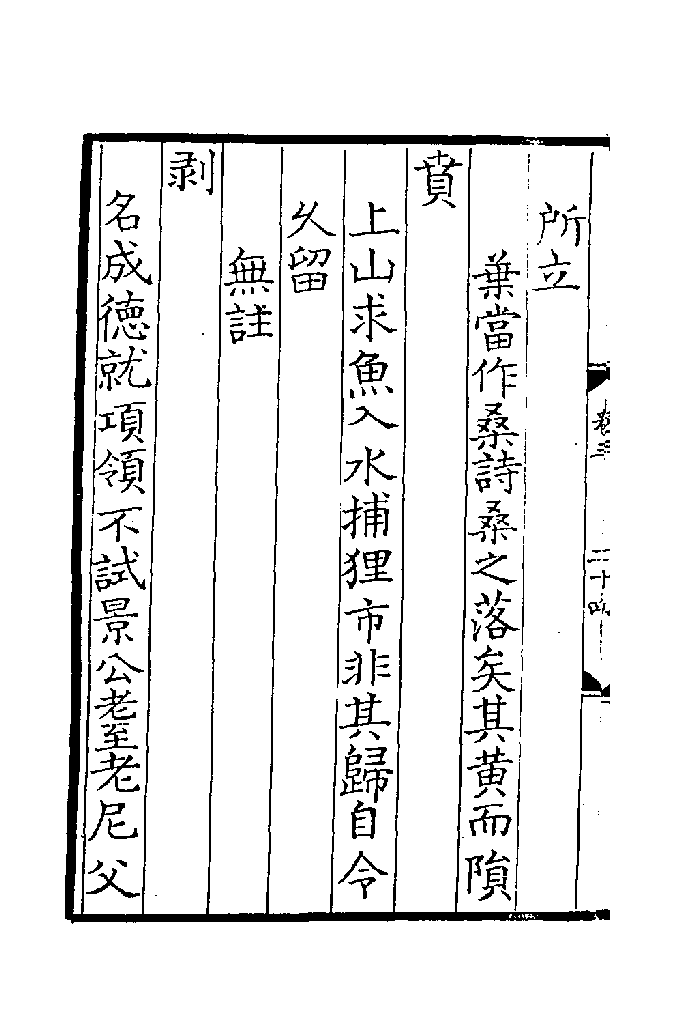 所立
葉當作桑詩桑之落矣其黄而隕
賁
上山求魚入水捕狸市非其歸自令
乆留
無註
剥
名成德就項領不試景公老至老尼父
卷三
二十